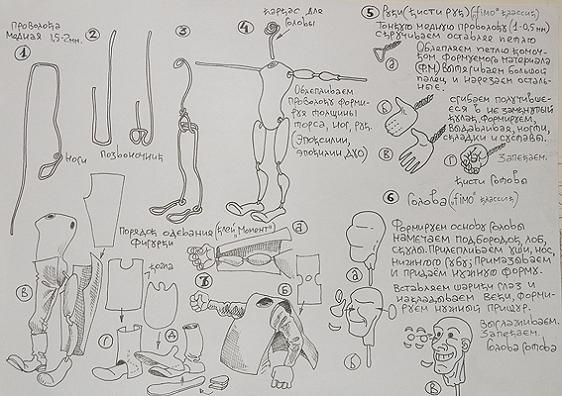 Проволока
медная 1,5-2мм.
1
2
3
4
Ноги
позвоночник
каркас для
головы
Облепливаем
проволоку форми-
руя толщины
торса, ног, рук.
(Эпоксилин,
эпоксилин ДХО)
5 Руки (кисти рук) (fimo классик)
Тонкую медную проволоку (1-0,5мм)
скручиваем оставляя петлю
а
Облепляем петлю комоч-
ком формуемого материала
(ФМ) вытягиваем большой
палец и нарезаем осталь-
ные.
б
в
сгибаем получивше-
еся в не замкнутый
кулак, формируем,
выдавливая, ногти,
складки и суставы.
г
Запекаем.
кисти готовы
6 Голова (fimo классик)
Формируем основу головы
намечаем подбородок, лоб,
скулы. Прилепливаем уши, нос,
нижнюю губу; Примазываем,
и придаём нужную форму.
Вставляем шарики глаз и
накладываем веки, форми-
руем нужный прищур.
Выглаживаем.
Запекаем.
Голова готова
а
б
в
Порядок одевания (клей "Момент")
фигурки
7
а
Б
В
кожа
г
д